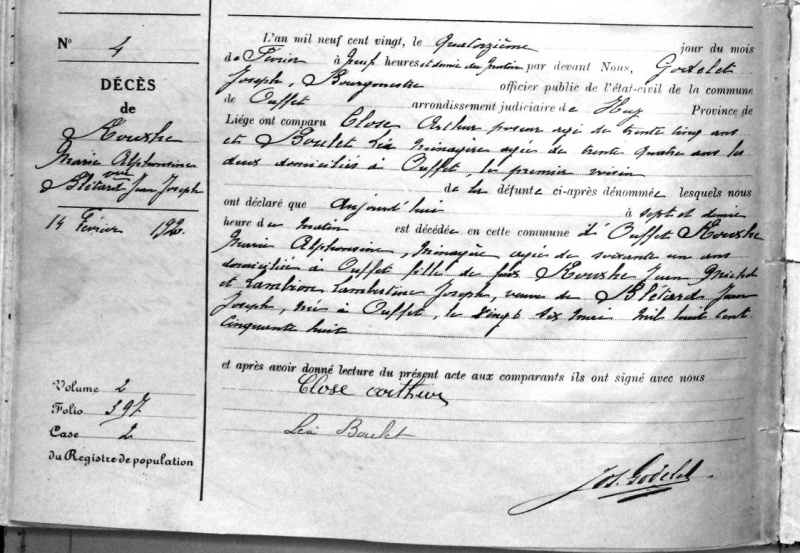 N° 4
DÉCÈS
de
Rouxhe
Marie Alphonsine
Vve
Blétard Jean Joseph
14 Février 1920.
Volume 2
Folio 397
Case 2
du Registre de population
L'an mil neuf cent vingt, le Quatorzième jour du mois
de Février à neuf heures et demie du matin par devant Nous, Godelet
Joseph, Bourgmestre officier public de l'état-civil de la commune
de Ouffet arrondissement judiciaire de Huy Province de
Liége ont comparu Close Arthur poseur agé de trente cinq ans
et Boulet Léa ménagère agée de trente quatre ans les
deux domiciliés à Ouffet, le premier voisin
de la défunte ci-après dénommée lesquels nous
ont déclaré que aujourd'hui à sept et demie
heure du matin est décédée en cette commune d'Ouffet Rouxhe
Marie Alphonsine, ménagère agée de soixante un ans
domiciliée à Ouffet fille de feus Rouxhe Jean
et Lambion Lambertine Joseph, veuve de Blétard Jean
Joseph, née à Ouffet, le vingt six mai mil huit cent
cinquante huit
et après avoir donné lecture du présent acte aux comparants ils ont signé avec nous
Close arthur
Léa Boulet
Jos. Godelet